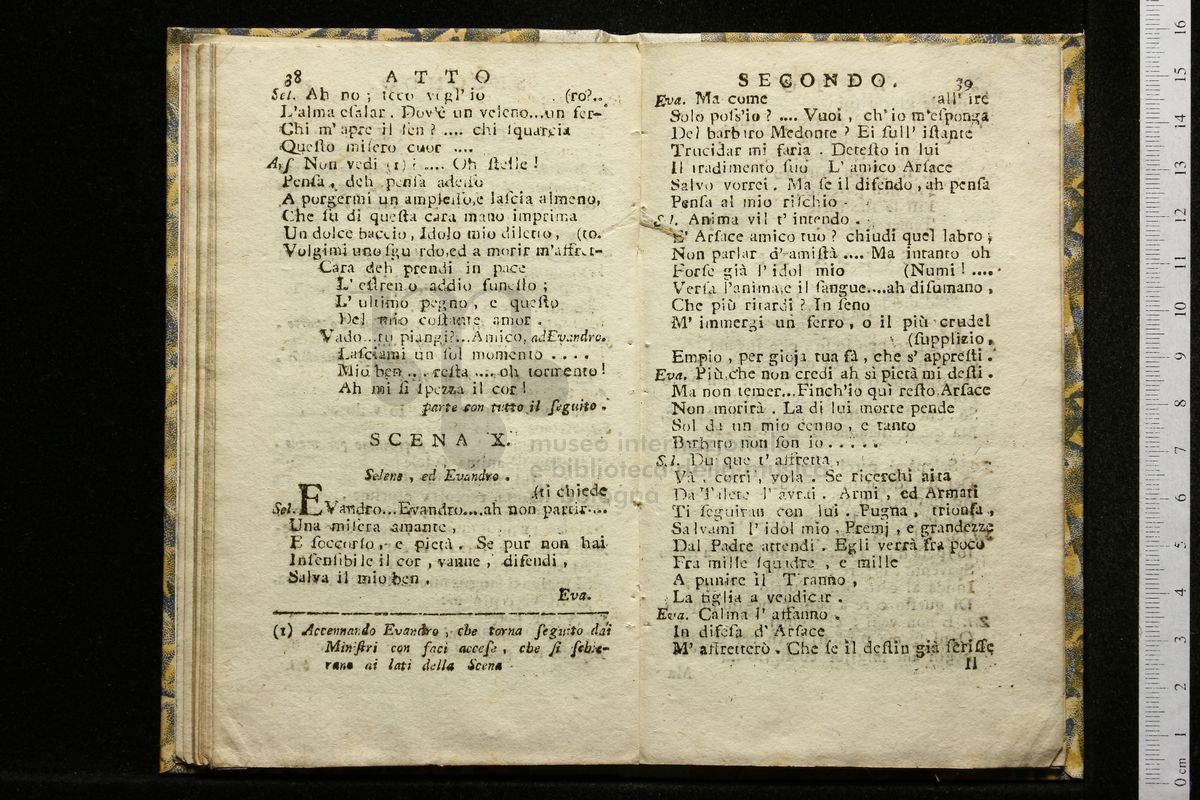 38 ATTO
Sel. Ah no; teco vogl' io (ro?..
L'alma esalar. Dov'è un veleno...un fer-
Chi m' apre il sen? .... chi squarcia
Questo misero cuor ....
Ars Non vedi (1)? .... Oh stelle!
Pensa, deh pensa adesso
A porgermi un amplesso, e lascia almeno,
Che su di questa cara mano imprima
Un dolce baccio, Idolo mio diletto, (to.
Volgimi uno sguardo, ed a morir m'affret-
Cara deh prendi in pace
L' estremo addio funesto;
L' ultimo pegno, e questo
Del mio costante amor.
Vado...tu piangi?...Amico, ad Evandro.
Lasciami un sol momento ....
Mio ben ... resta .... oh tormento!
Ah mi si spezza il cor!
parte con tutto il seguito.
SCENA X.
Selene, ed Evandro.
(ti chiede
Sel. EVandro...Evandro....ah non partir....
Una misera amante,
E soccorso, e pietà. Se pur non hai
Insensibile il cor, vanne, difendi,
Salva il mio ben.
Eva.
(1) Accennando Evandro, che torna seguito dai
Ministri con faci accese, che si schie-
rano ai lati della Scena
SECONDO. 39
Eva. Ma come all' ire
Solo poss'io? .... Vuoi, ch'io m'esponga
Del barbaro Medonte? Ei sull' istante
Trucidar mi faria. Detesto in lui
Il tradimento suo L' amico Arsace
Salvo vorrei. Ma se il difendo, ah pensa
Pensa al mio rischio.
Sel. Anima vil t' intendo.
E' Arsace amico tuo? chiudi quel labro;
Non parlar d' amistà .... Ma intanto oh
Forse già l' idol mio (Numi! ....
Versa l'anima, e il sangue....ah disumano,
Che più ritardi? In seno
M' immergi un ferro, o il più crudel
(supplizio.
Empio, per gioja tua fà, che s' appresti.
Eva. Più, che non credi ah sì pietà mi desti.
Ma non temer...Finch'io quì resto Arsace
Non morirà. La di lui morte pende
Sol da un mio cenno, e tanto
Barbaro non son io.....
Sel. Dunque t' affretta,
Va, corri, vola. Se ricerchi aita
Da l' avrai. Armi, ed Armati
Ti seguiran con lui. Pugna, trionfa,
Salvami l' idol mio. Premj, e grandezze
Dal Padre attendi. Egli verrà fra poco
Fra mille squadre, e mille
A punire il Tiranno,
La figlia a vendicar.
Eva. Calma l' affanno.
In difesa d' Arsace
M' affretterò. Che se il destin già scrisse
Il